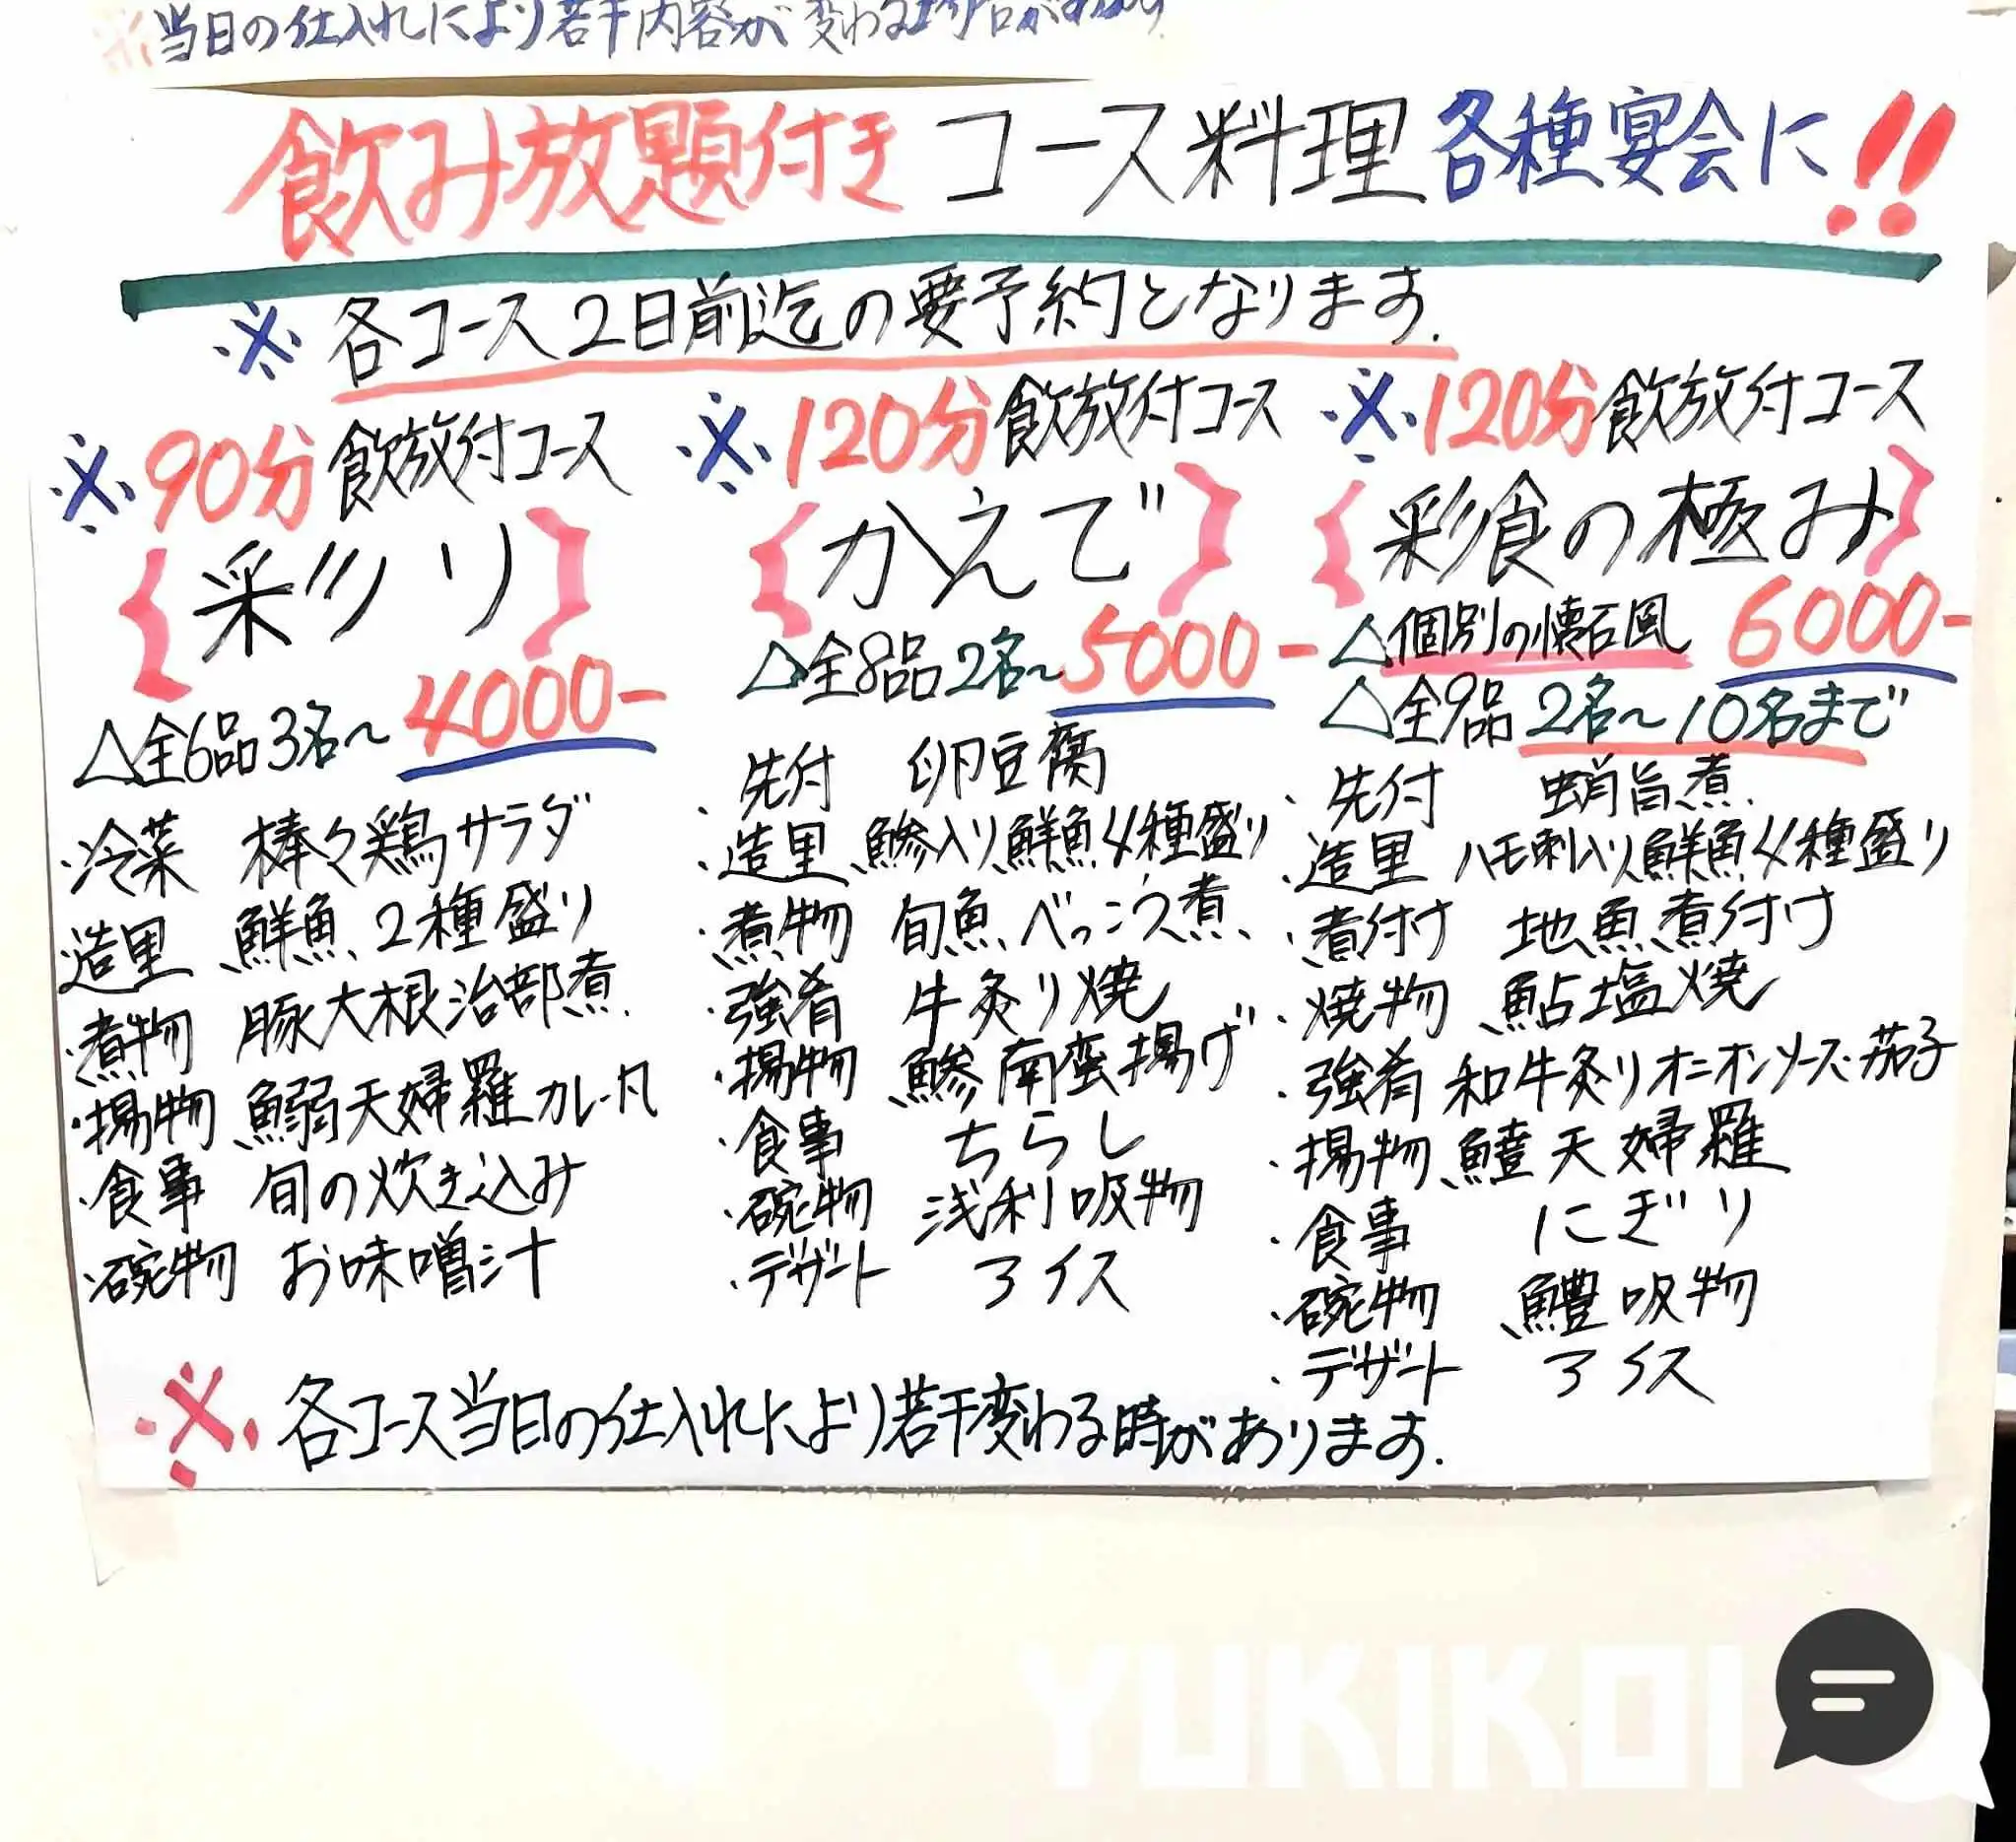 ※当日の仕入れにより若干内容が変わる場合があります
飲み放題付きコース料理 各種宴会に!!
※各コース2日前迄の要予約となります.
※90分飲放付コース
{彩り}
△全6品3名〜4000-
・冷菜 棒々鶏サラダ
造里 鮮魚2種盛り
・煮物 豚大根治部煮
・揚物 鰯天婦羅カレー凡
・食事 旬の炊き込み
・碗物 お味噌汁
※120分飲放付コース
{かえで}
△全8品2名〜5000-
・先付 卵豆腐
・造里 鯵入り鮮魚4種盛り
・煮物 旬魚べっこう煮
・強肴 牛炙り焼
・揚物 鯵南蛮揚げ
・食事 ちらし
・碗物 浅利吸物
・デザート アイス
※120分飲放付コース
{彩食の極み}
△個別の懐石風 6000-
△全9品 2名〜10名まで
・先付 蛸旨煮
・造里 ハモ刺入り鮮魚4種盛り
・煮付け 地魚煮付け
・焼物 鮎塩焼
・強肴 和牛炙りオニオンソース・茄子
・揚物 鱧天婦羅
・食事 にぎり
・碗物 鱧吸物
・デザート アイス
※各コース当日の仕入れにより若干変わる時があります.
YUKIKOI